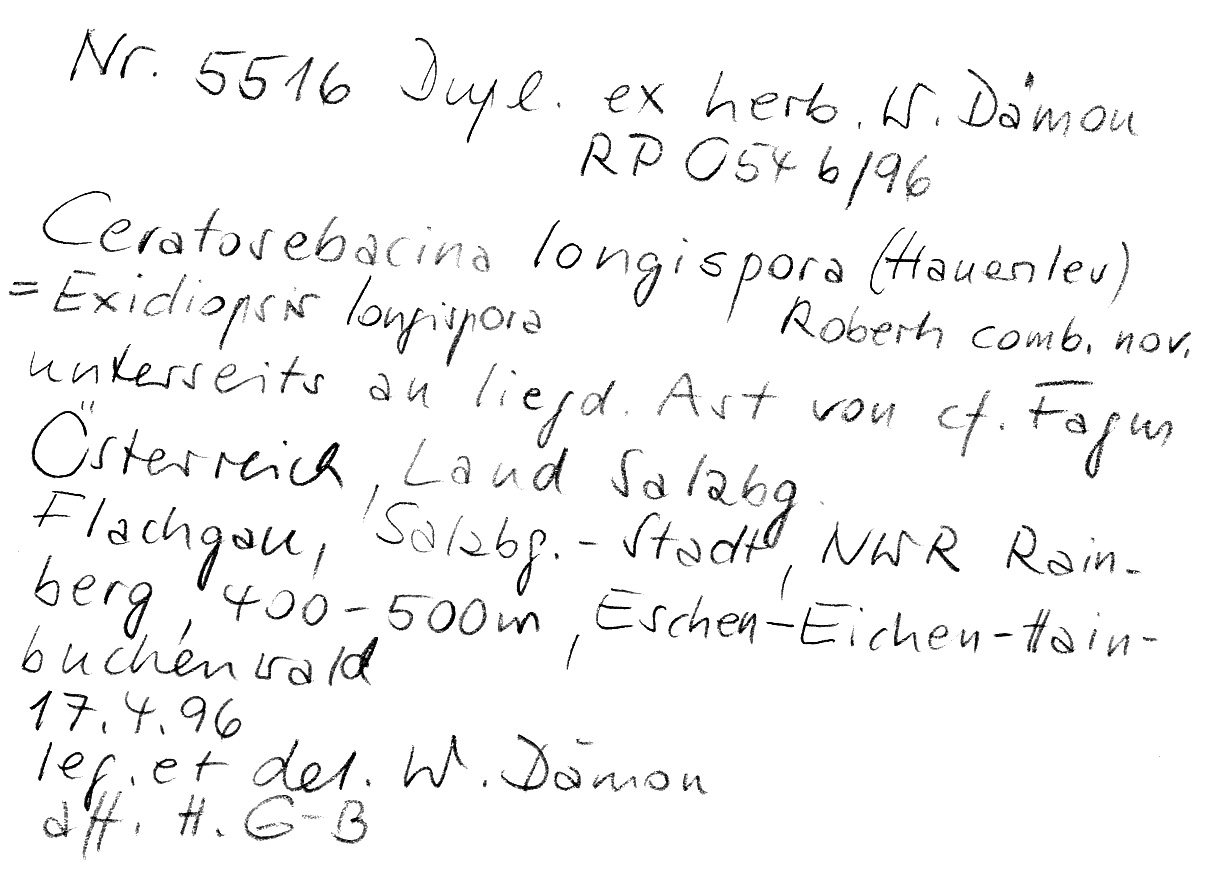 Nr. 5516 Dupl. ex herb. W. Dämon
RP 0546/96
Ceratosebacina longispora (Hauerslev)
= Exidiopsis longispora Roberts comb. nov.
unterseits an liegd. Ast von cf. Fagus
Österreich, Land Salzbg.
Flachgau, Salzbg.-Stadt, NWR Rain-
berg, 400-500m, Eschen-Eichen-Hain-
buchenwald
17.4.96
leg. et det. W. Dämon
H. G-B